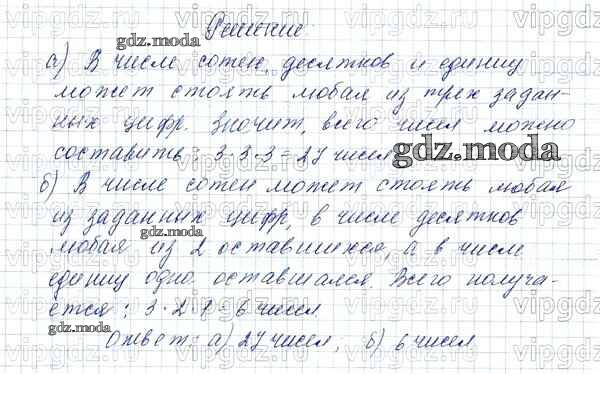 Решение.
а) В числе сотен, десятков и единиц
может стоять любая из трех задан-
ных цифр. Значит, всего чисел можно
составить: 3·3·3 = 27 чисел
gdz.moda
б) В числе сотен может стоять любая
из заданных цифр, в числе десятков
любая из 2 оставшихся, а в числе
единиц одна оставшаяся. Всего получа-
ется: 3·2·1 = 6 чисел
Ответ: а) 27 чисел, б) 6 чисел
gdz.moda
gdz.moda
gdz.moda
vipgdz.ru